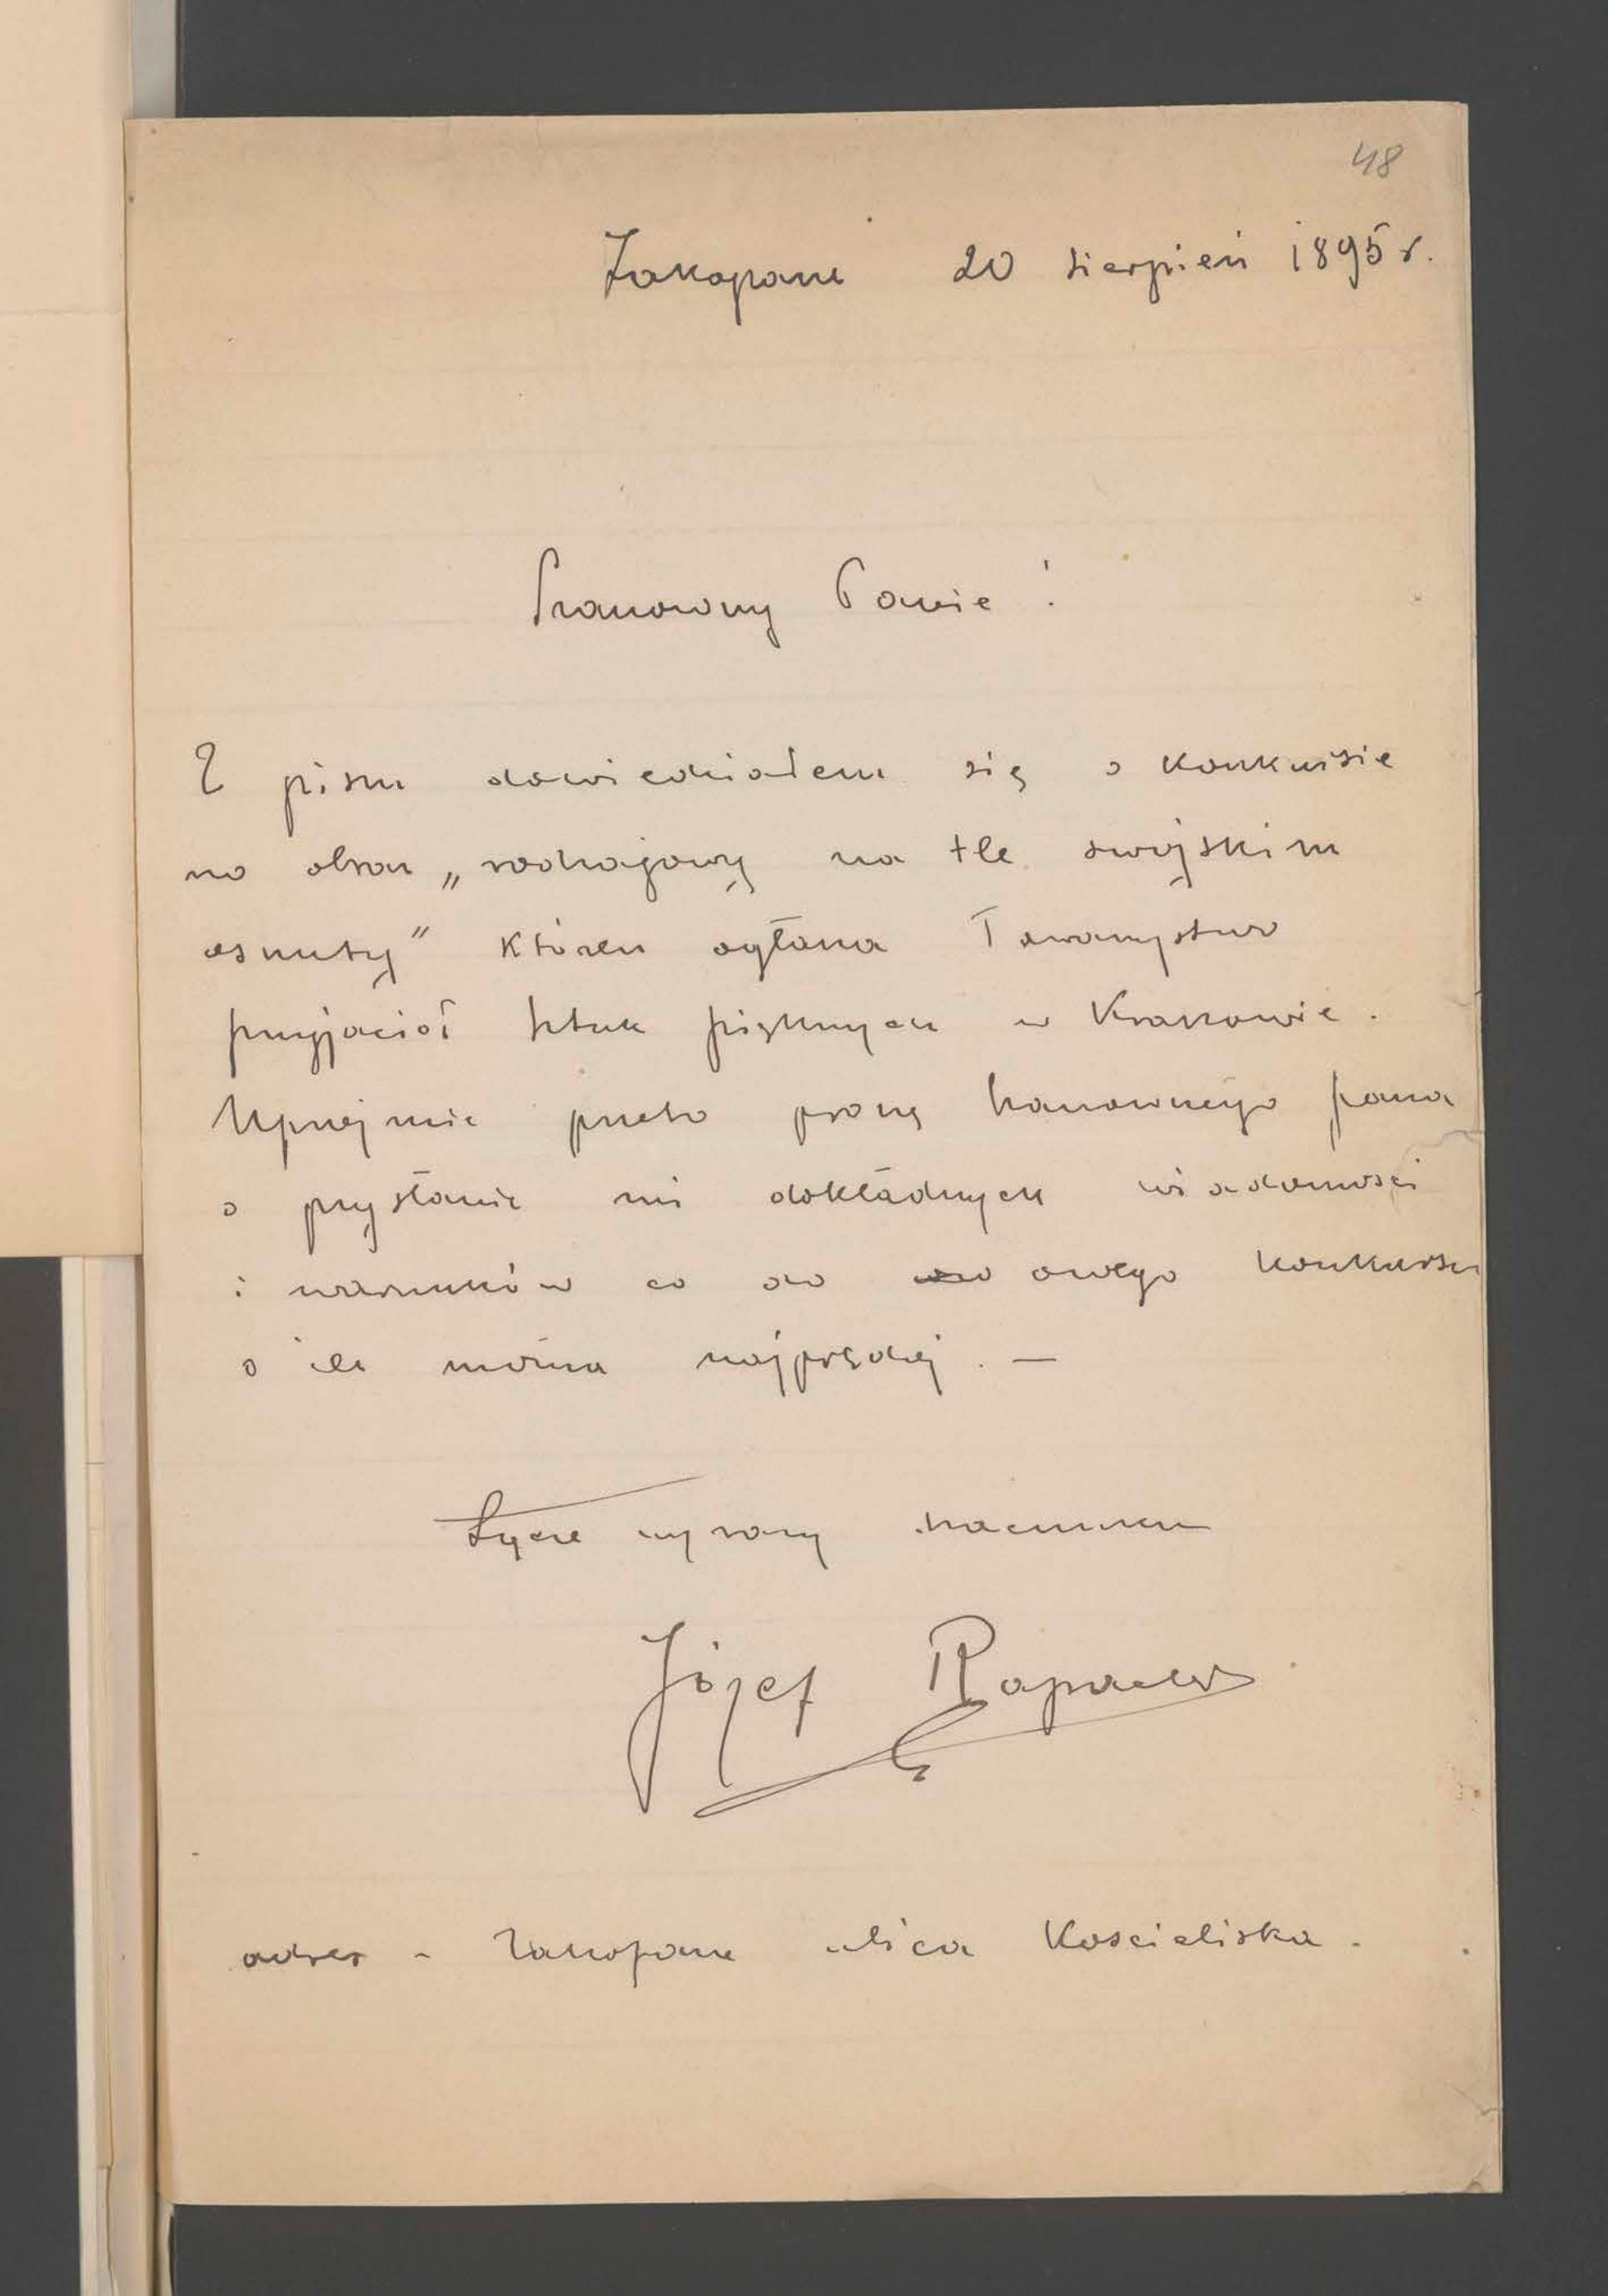 48
Zakopane 20 sierpień 1895 r.
Szanowny Panie!
Z pism dowiedziałem się o konkursie
na obraz „rodzajowy na tle swojskim
osnuty" któren ogłasza Towarzystwo
przyjaciół sztuk pięknych w Krakowie.
Uprzejmie przeto proszę szanownego pana
o przysłanie mi dokładnych wiadomości
i warunków co do owego konkursu
o ile można najprędzej. —
Łączę wyrazy szacunku
Józef Rapacki
adres - Zakopane ulica Kościeliska.